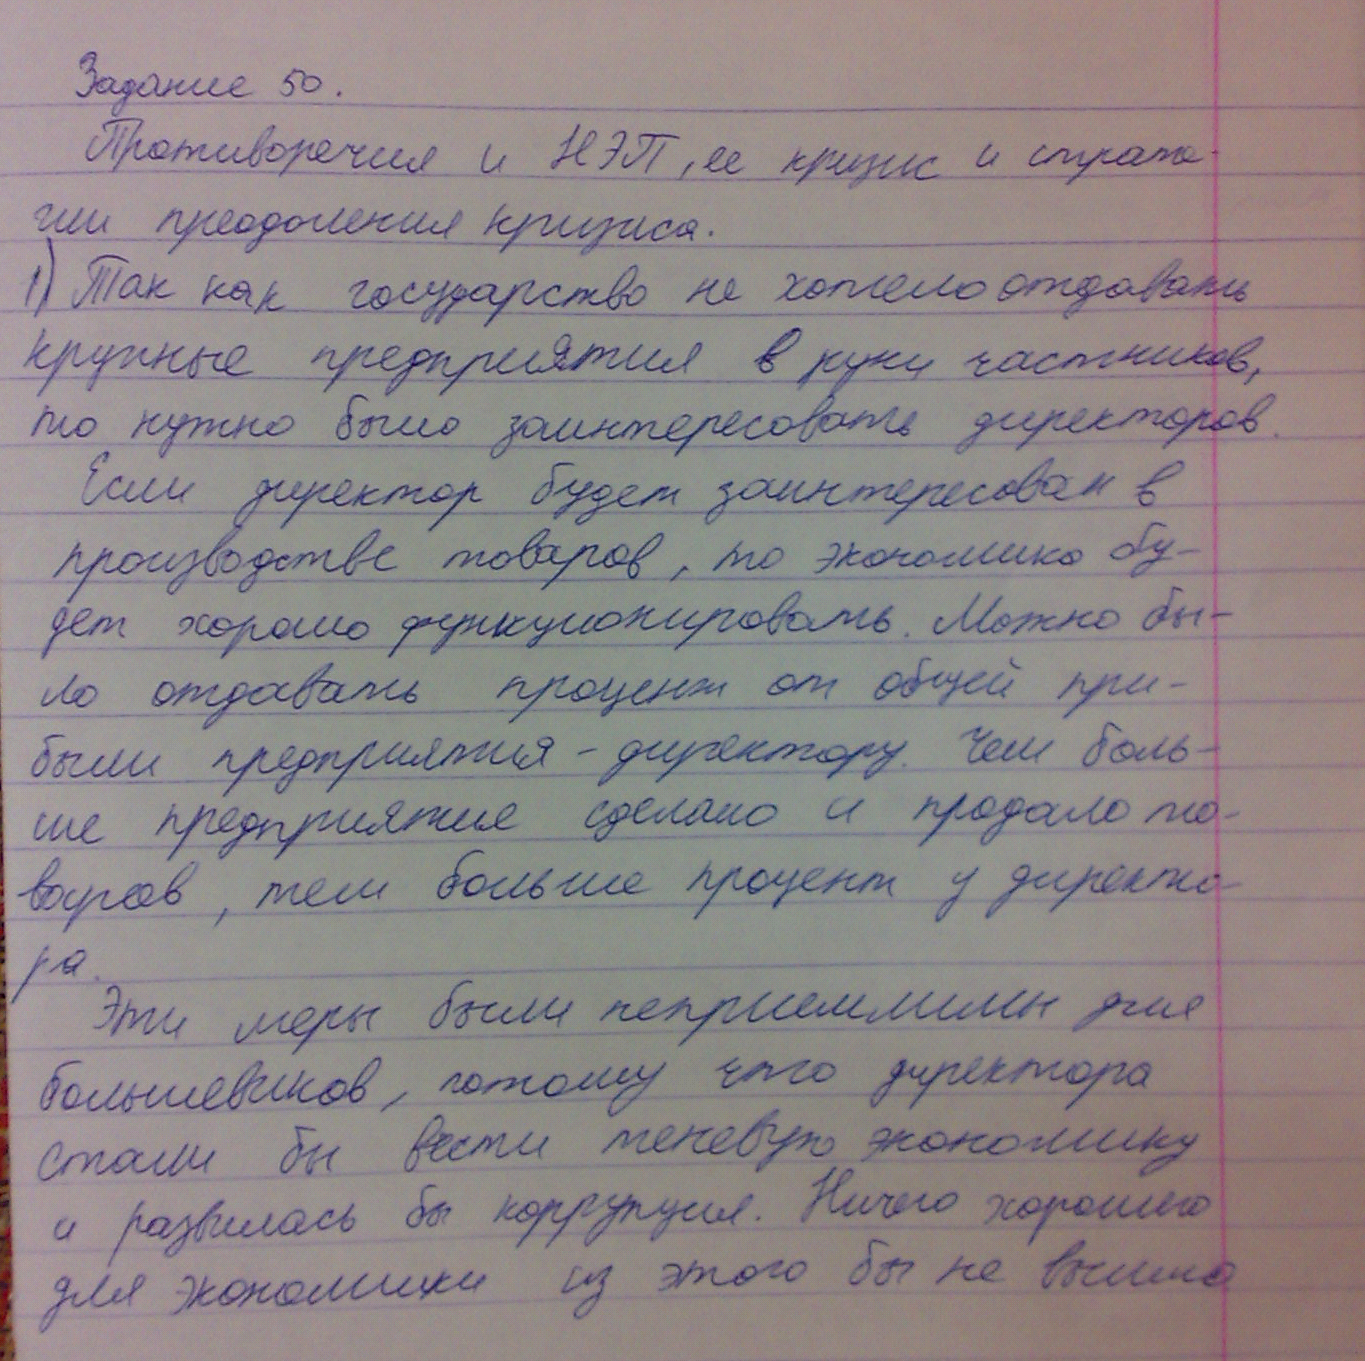 Задание 50.
Противоречия и НЭП, ее кризис и страте-
гии преодоления кризиса.
1) Так как государство не хотело отдавать
крупные предприятия в руки частников,
то нужно было заинтересовать директоров.
Если директор будет заинтересован в
производстве товаров, то экономика бу-
дет хорошо функционировать. Можно бы-
ло отдавать процент от общей при-
были предприятия - директору. Чем боль-
ше предприятие сделало и продало то-
варов, тем больше процент у директо-
ра.
Эти меры были неприемлимы для
большевиков, потому что директора
стали бы вести теневую экономику
и развилась бы коррупция. Ничего хорошего
для экономики из этого бы не вышло